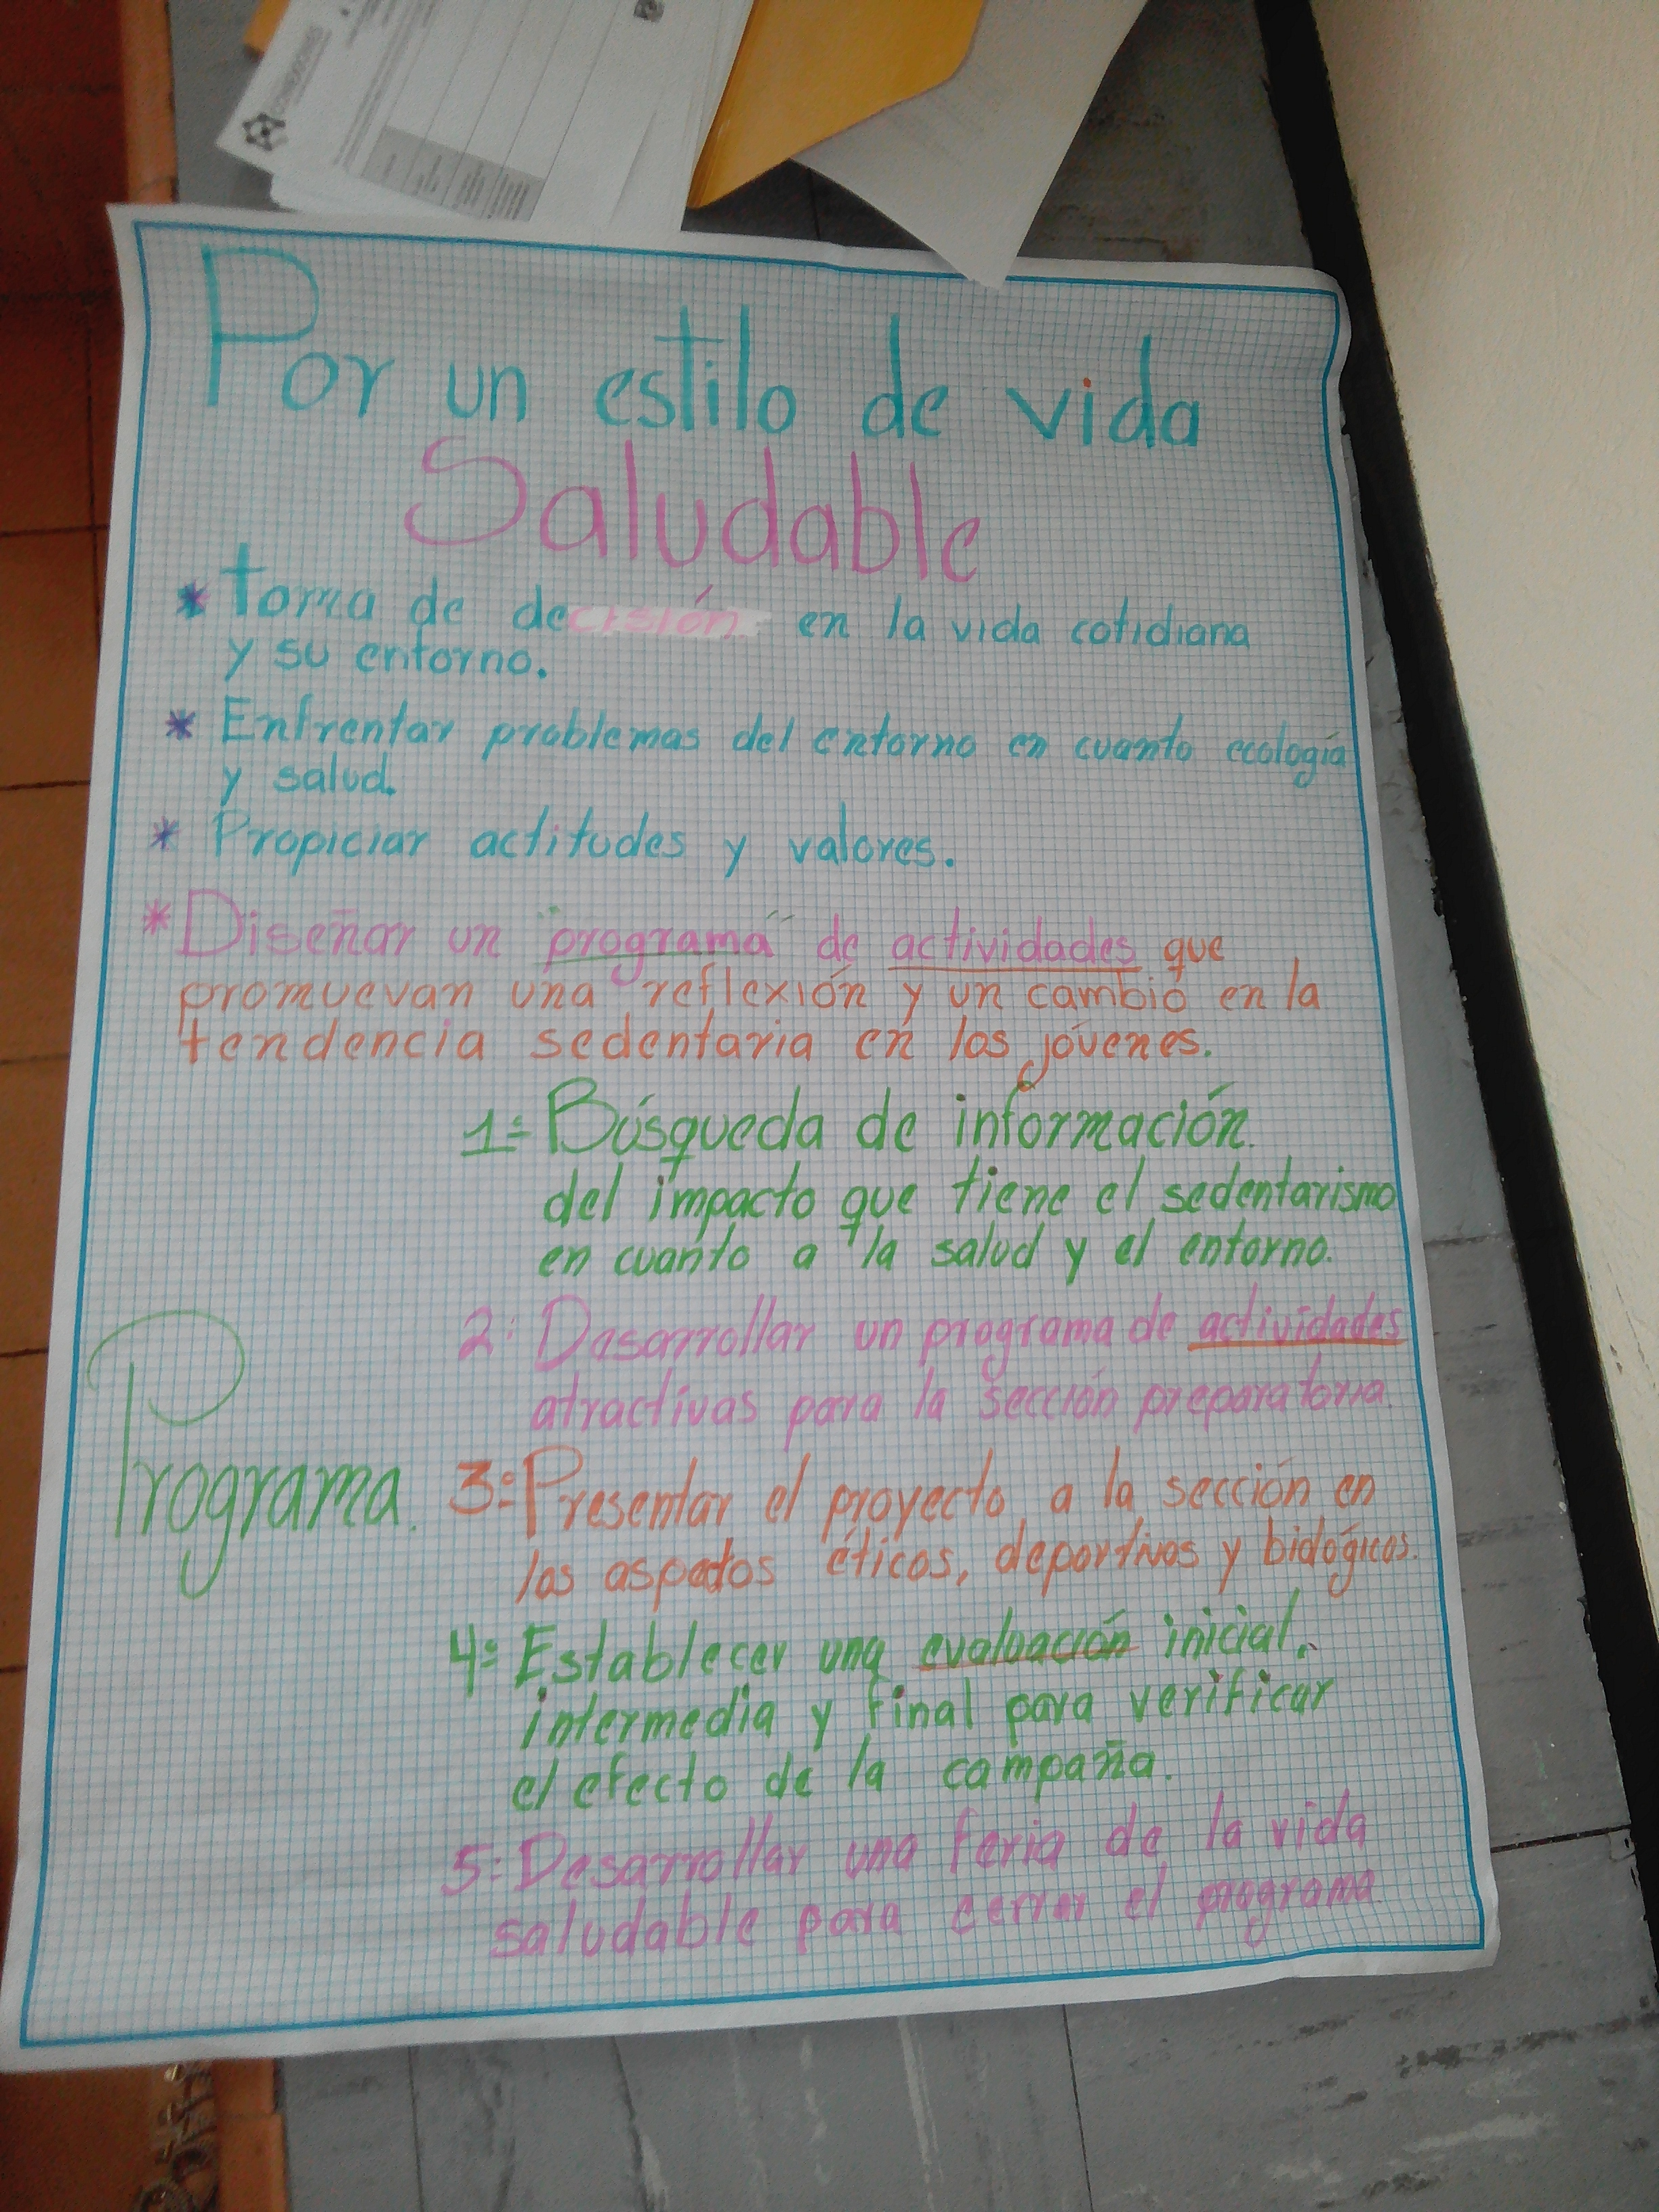 CONEXIONES
Por un estilo de vida
Saludable
* Toma de decisión en la vida cotidiana
y su entorno.
* Enfrentar problemas del entorno en cuanto ecología
y salud.
* Propiciar actitudes y valores.
* Diseñar un "programa" de actividades que
promuevan una reflexión y un cambio en la
tendencia sedentaria en los jóvenes.
1= Búsqueda de información
del impacto que tiene el sedentarismo
en cuanto a la salud y el entorno.
2: Desarrollar un programa de actividades
atractivas para la sección preparatoria.
Programa.
3= Presentar el proyecto a la sección en
los aspectos éticos, deportivos y biológicos.
4= Establecer una evaluación inicial,
intermedia y final para verificar
el efecto de la campaña.
5: Desarrollar una feria de la vida
saludable para cerrar el programa.